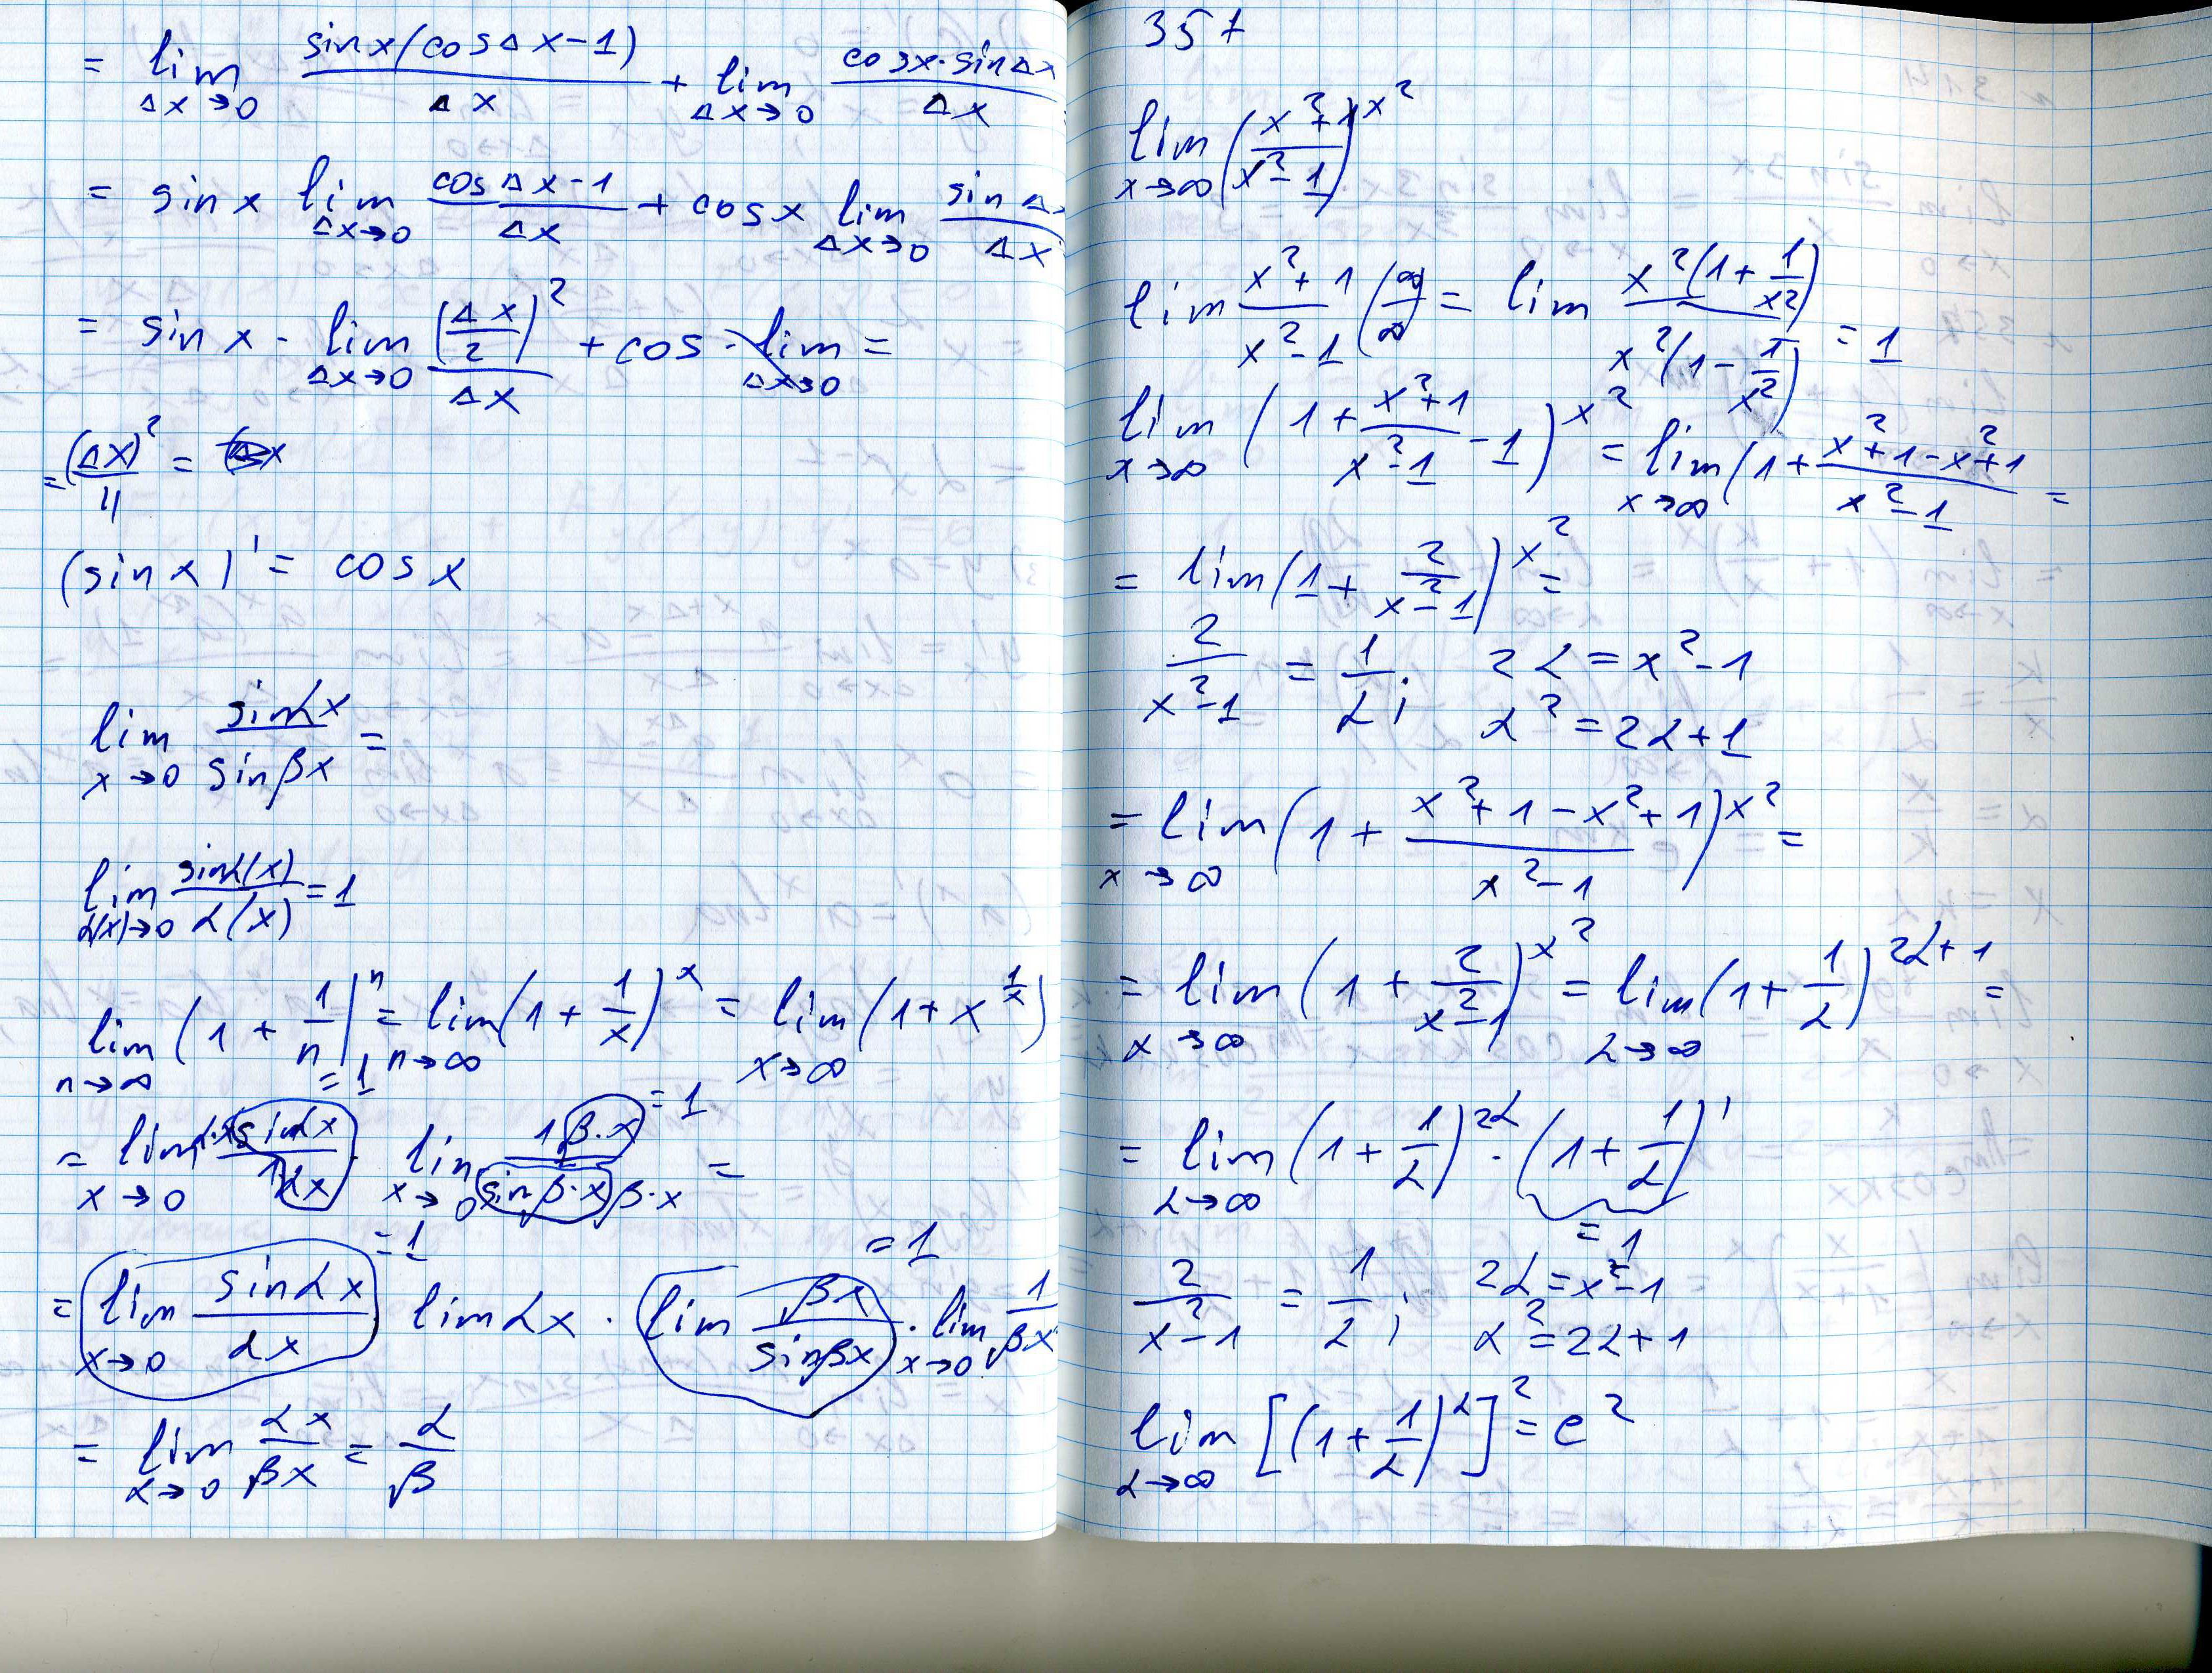 = lim Δx→0 sinx(cosΔx-1)/Δx + lim Δx→0 cosx·sinΔx/Δx
= sin x lim Δx→0 cosΔx-1/Δx + cosx lim Δx→0 sinΔ/Δx
= sin x · lim Δx→0 (Δx/2)²/Δx + cos · lim Δx→0 =
= (Δx)²/4 =
(sin x)' = cos x
lim x→0 sinαx/sinβx =
lim α(x)→0 sinα(x)/α(x) = 1
lim n→∞ (1 + 1/n)ⁿ = lim n→∞ (1 + 1/x)ˣ = lim x→∞ (1 + x^(1/x))
= lim x→0 αx·sinαx/1·αx = 1 lim x→0 1·β·x/sinβ·x β·x = 1 =
= lim x→0 sinαx/αx = 1 limαx · lim βx/sinβx = 1 · lim x→0 1/βx
= lim x→0 αx/βx = α/β
357
lim x→∞ (x²+1/x²-1)^x²
lim x²+1/x²-1 (∞/∞) = lim x²(1+1/x²)/x²(1-1/x²) = 1
lim x→∞ (1 + x²+1/x²-1 - 1)^x² = lim x→∞ (1 + x²+1-x²+1/x²-1 =
= lim (1 + 2/x²-1)^x² =
2/x²-1 = 1/α; 2α = x²-1
x² = 2α+1
= lim x→∞ (1 + x²+1-x²+1/x²-1)^x² =
= lim x→∞ (1 + 2/x²-1)^x² = lim α→∞ (1 + 1/α)^2α+1 =
= lim α→∞ (1 + 1/α)^2α · (1 + 1/α)^1
= 1
2/x²-1 = 1/α; 2α = x²-1
x² = 2α+1
lim α→∞ [(1 + 1/α)^α]² = e²